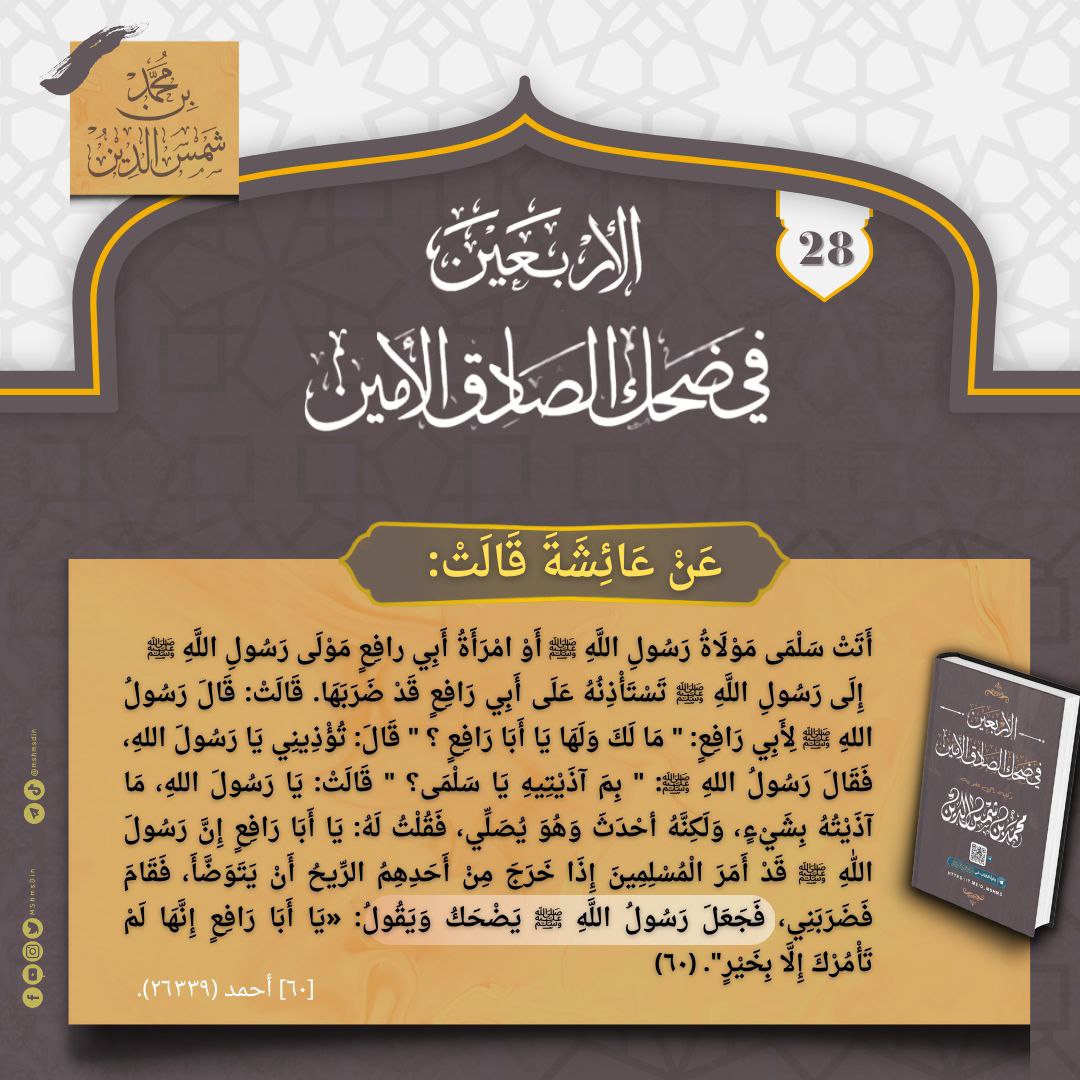 بن محمد
شمس الدين
الأربعين
28
في ضحك الصادق الأمين
عَنْ عَائِشَةَ قَالَتْ:
أَتَتْ سَلْمَى مَوْلَاةُ رَسُولِ اللَّهِ ﷺ أَوْ امْرَأَةُ أَبِي رافِعٍ مَوْلَى رَسُولِ اللَّهِ ﷺ
إِلَى رَسُولِ اللَّهِ ﷺ تَسْتَأْذِنُهُ عَلَى أَبِي رَافِعٍ قَدْ ضَرَبَهَا. قَالَتْ: قَالَ رَسُولُ
اللهِ ﷺ لِأَبِي رَافِعٍ: " مَا لَكَ وَلَهَا يَا أَبَا رَافِعٍ ؟ " قَالَ: تُؤْذِينِي يَا رَسُولَ اللهِ،
فَقَالَ رَسُولُ اللهِ ﷺ: " بِمَ آذَيْتِيهِ يَا سَلْمَى؟ " قَالَتْ: يَا رَسُولَ اللهِ، مَا
آذَيْتُهُ بِشَيْءٍ، وَلَكِنَّهُ أحْدَثَ وَهُوَ يُصَلِّي، فَقُلْتُ لَهُ: يَا أَبَا رَافِعٍ إِنَّ رَسُولَ
اللَّهِ ﷺ قَدْ أَمَرَ الْمُسْلِمِينَ إِذَا خَرَجَ مِنْ أَحَدِهِمُ الرِّيحُ أَنْ يَتَوَضَّأَ، فَقَامَ
فَضَرَبَنِي، فَجَعَلَ رَسُولُ اللَّهِ ﷺ يَضْحَكُ وَيَقُولُ: «يَا أَبَا رَافِعٍ إِنَّهَا لَمْ
تَأْمُرْكَ إِلَّا بِخَيْرٍ". (٦٠)
[٦٠] أحمد (٢٦٣٣٩).
الأربعين
في ضحك الصادق الأمين
محمد بن شمس الدين
@mshmsdin
MShmsDin